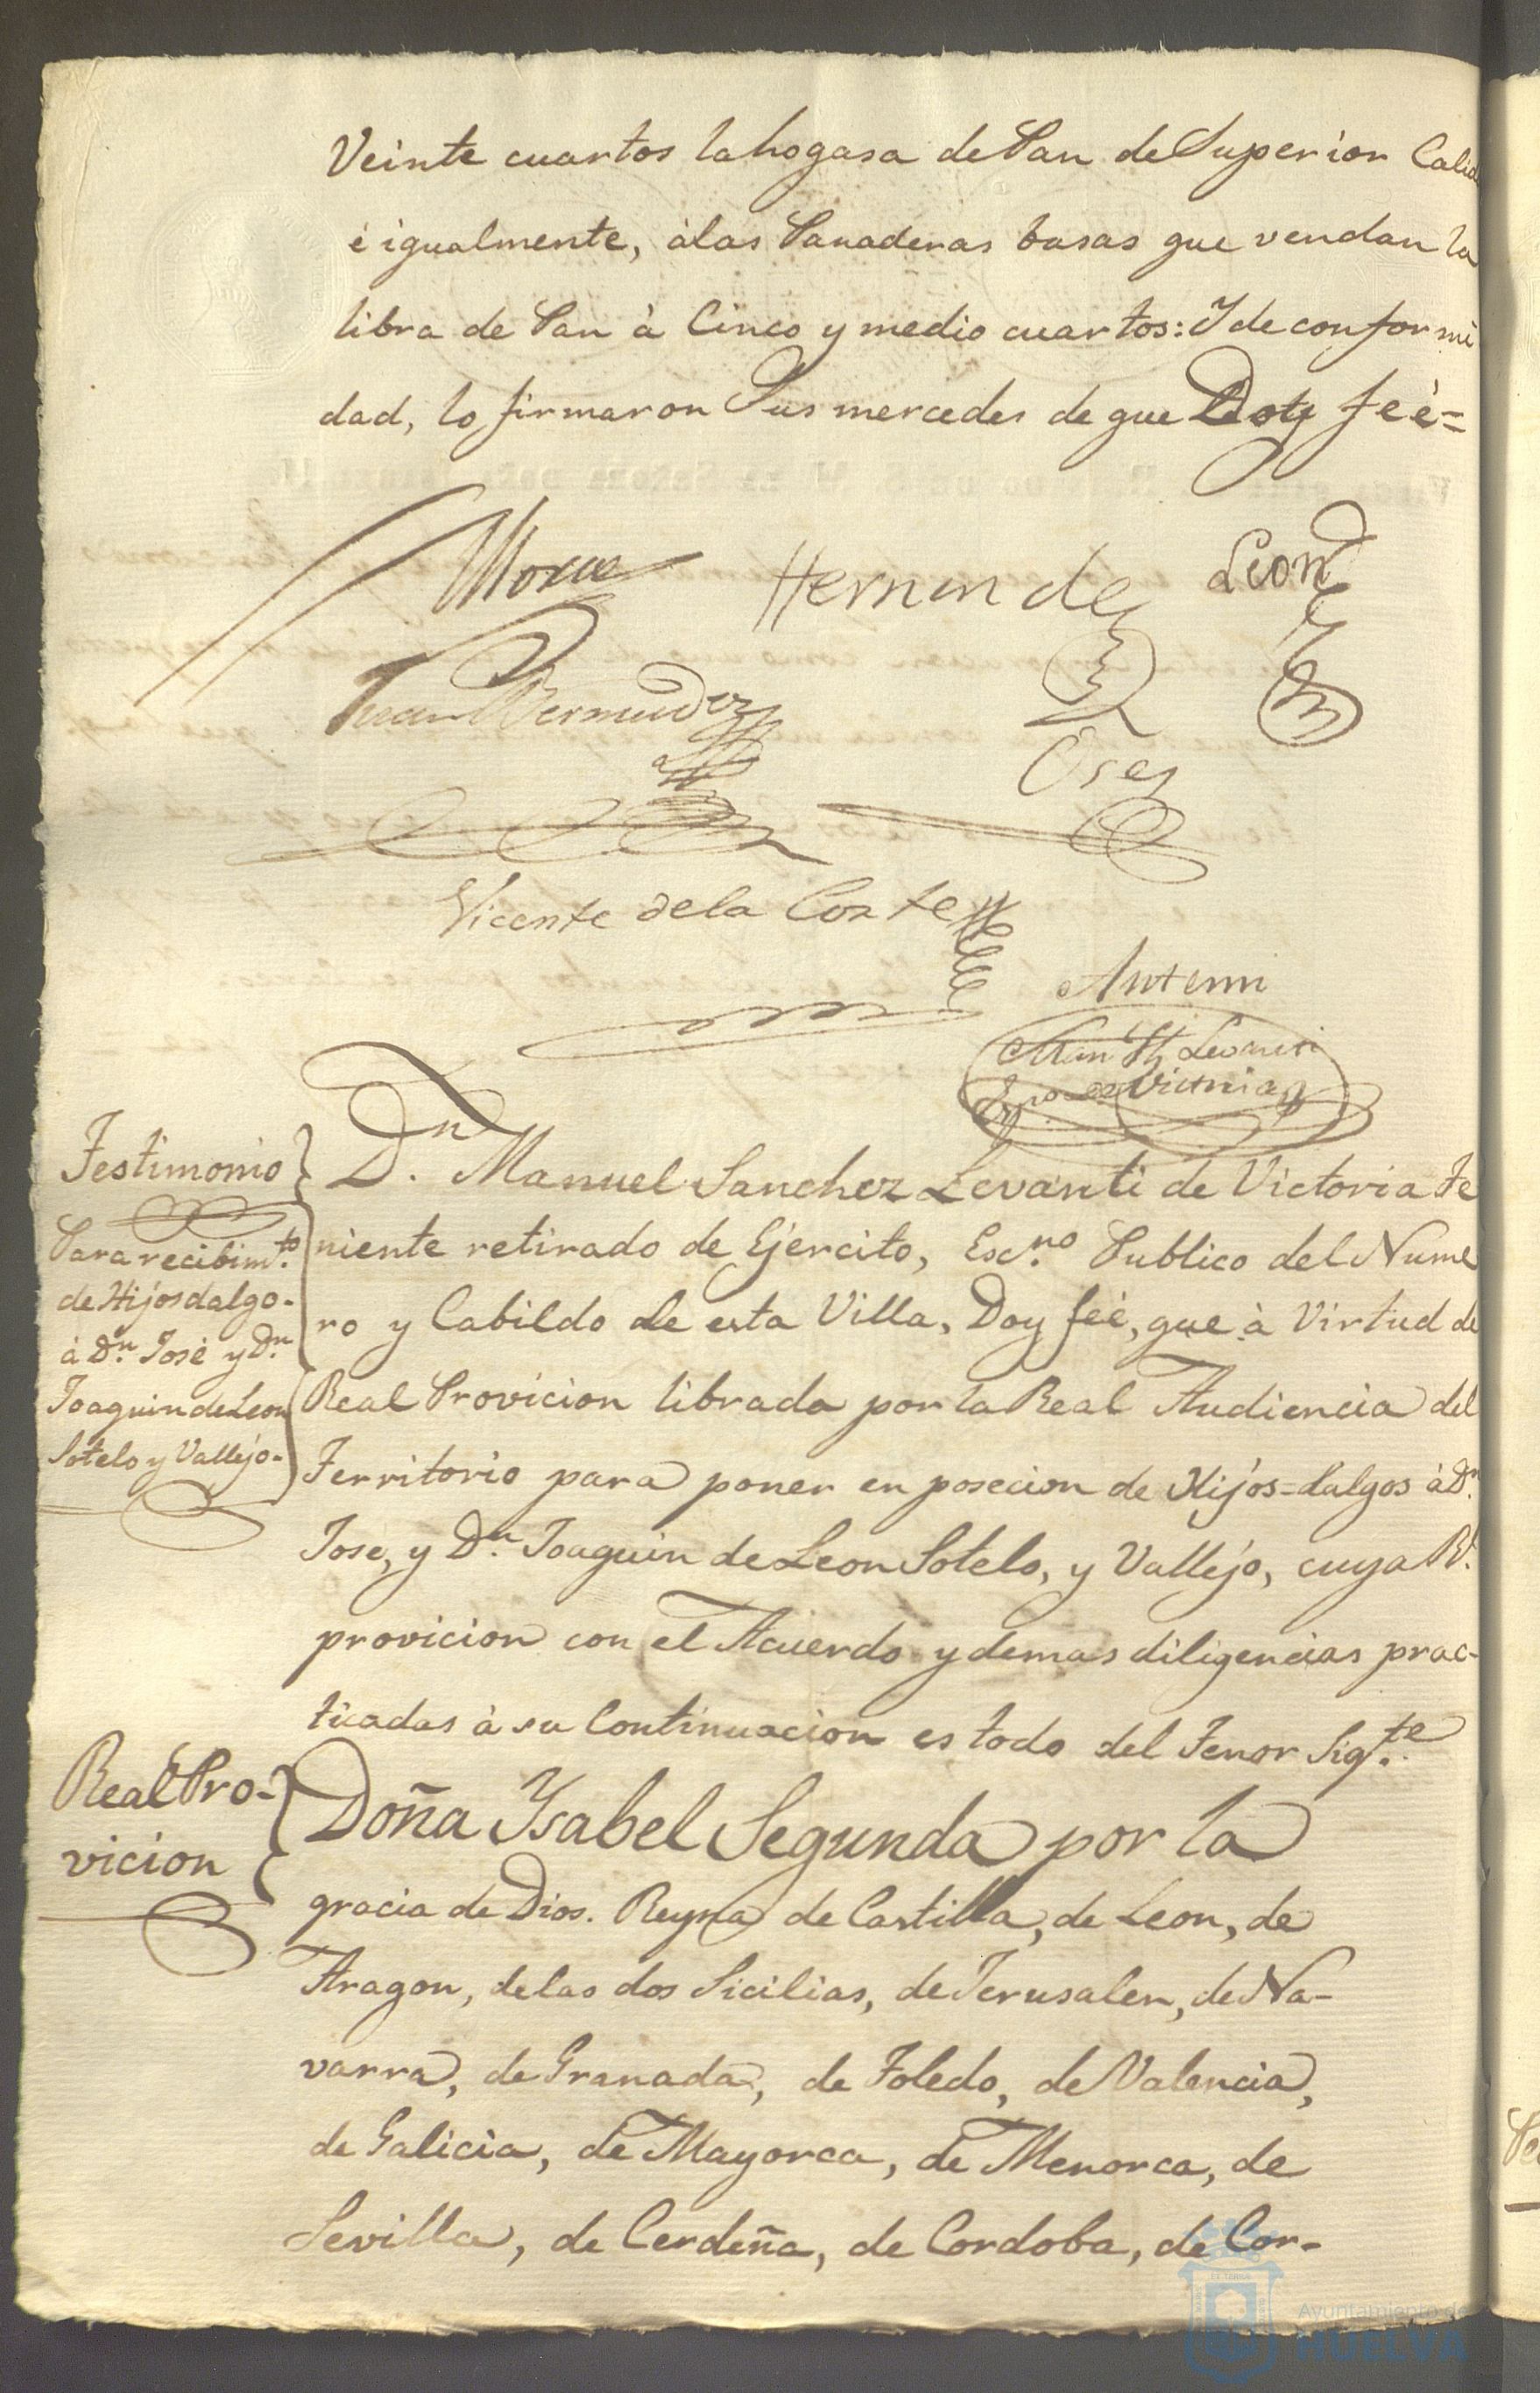 Veinte cuartos la hogasa de Pan de Superior Calid
è igualmente, à las Panaderas basas que vendan la
libra de Pan à Cinco y medio cuartos: Y de conformi
dad, lo firmaron Sus mercedes de que Doy feè=
Hernande Leon
Juan Bermudez
Oses
Vicente de la Corte
Antemi
Testimonio
Para recibim.to
de Hijosdalgo-
à D.n José y D.n
Joaquin de Leon
Sotelo y Vallejo-
D.n Manuel Sanchez Levanti de Victoria Te
niente retirado de Ejercito, Esc.no Publico del Nume
ro y Cabildo de esta Villa, Doy feè, que à Virtud de
Real Provicion librada por la Real Audiencia del
Territorio para poner en posecion de Hijos=dalgos à D.n
Jose, y D.n Joaquin de Leon Sotelo, y Vallejo, cuya R.l
provicion con el Acuerdo y demas diligencias prac-
ticadas à su Continuacion es todo del Tenor Sig.te
Real Pro-
vicion
Doña Ysabel Segunda por la
gracia de Dios. Reyna de Castilla, de Leon, de
Aragon, de las dos Sicilias, de Jerusalen, de Na-
varra, de Granada, de Toledo, de Valencia,
de Galicia, de Mayorca, de Menorca, de
Sevilla, de Cerdeña, de Cordoba, de Cor-
Ayuntamiento de
HUELVA